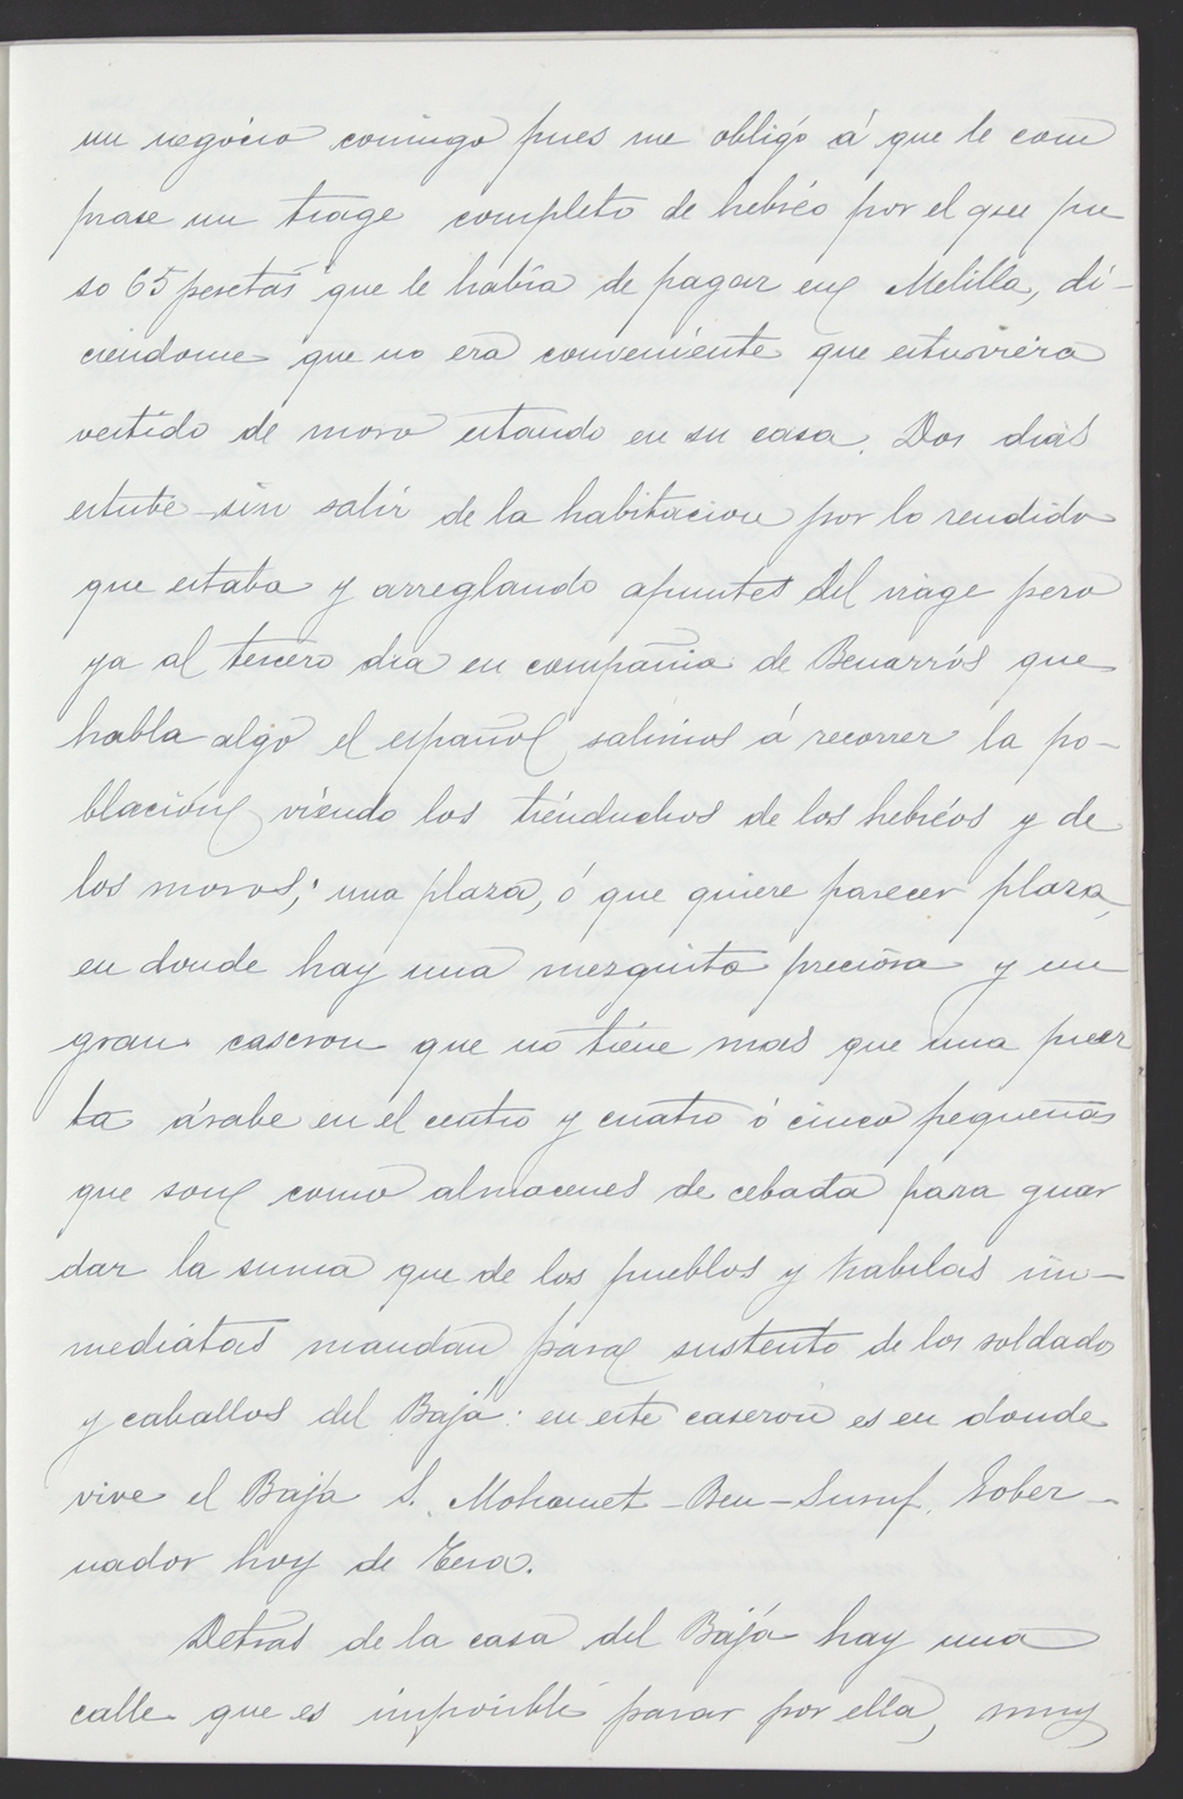 un negócio comingo pues me obligó á que le com
prase un trage completo de hebréo por el que pu
so 65 pesetas que le había de pagar en Melilla, di-
ciendome que no era conveniente que estuviera
vestido de moro estando en su casa. Dos dias
estube sin salir de la habitacion por lo rendido
que estaba y arreglando apuntes del viage pero
ya al tercero dia en compañia de Benarrós que
habla algo el español salimos á recorrer la po-
blación viendo los tienduchos de los hebréos y de
los moros; una plaza, ó que quiere parecer plaza,
en donde hay una mezquita preciosa y un
gran caseron que no tiene mas que una puer
ta árabe en el centro y cuatro ó cinco pequeñas
que son como almacenes de cebada para guar
dar la suma que de los pueblos y kabilas in-
mediatas mandan para sustento de los soldados
y caballos del Bajá: en este caseron es en donde
vive el Bajá S. Mohamet-Ben-Susuf, Gober-
nador hoy de Teza.
Detras de la casa del Bajá hay una
calle que es imposible pasar por ella, muy